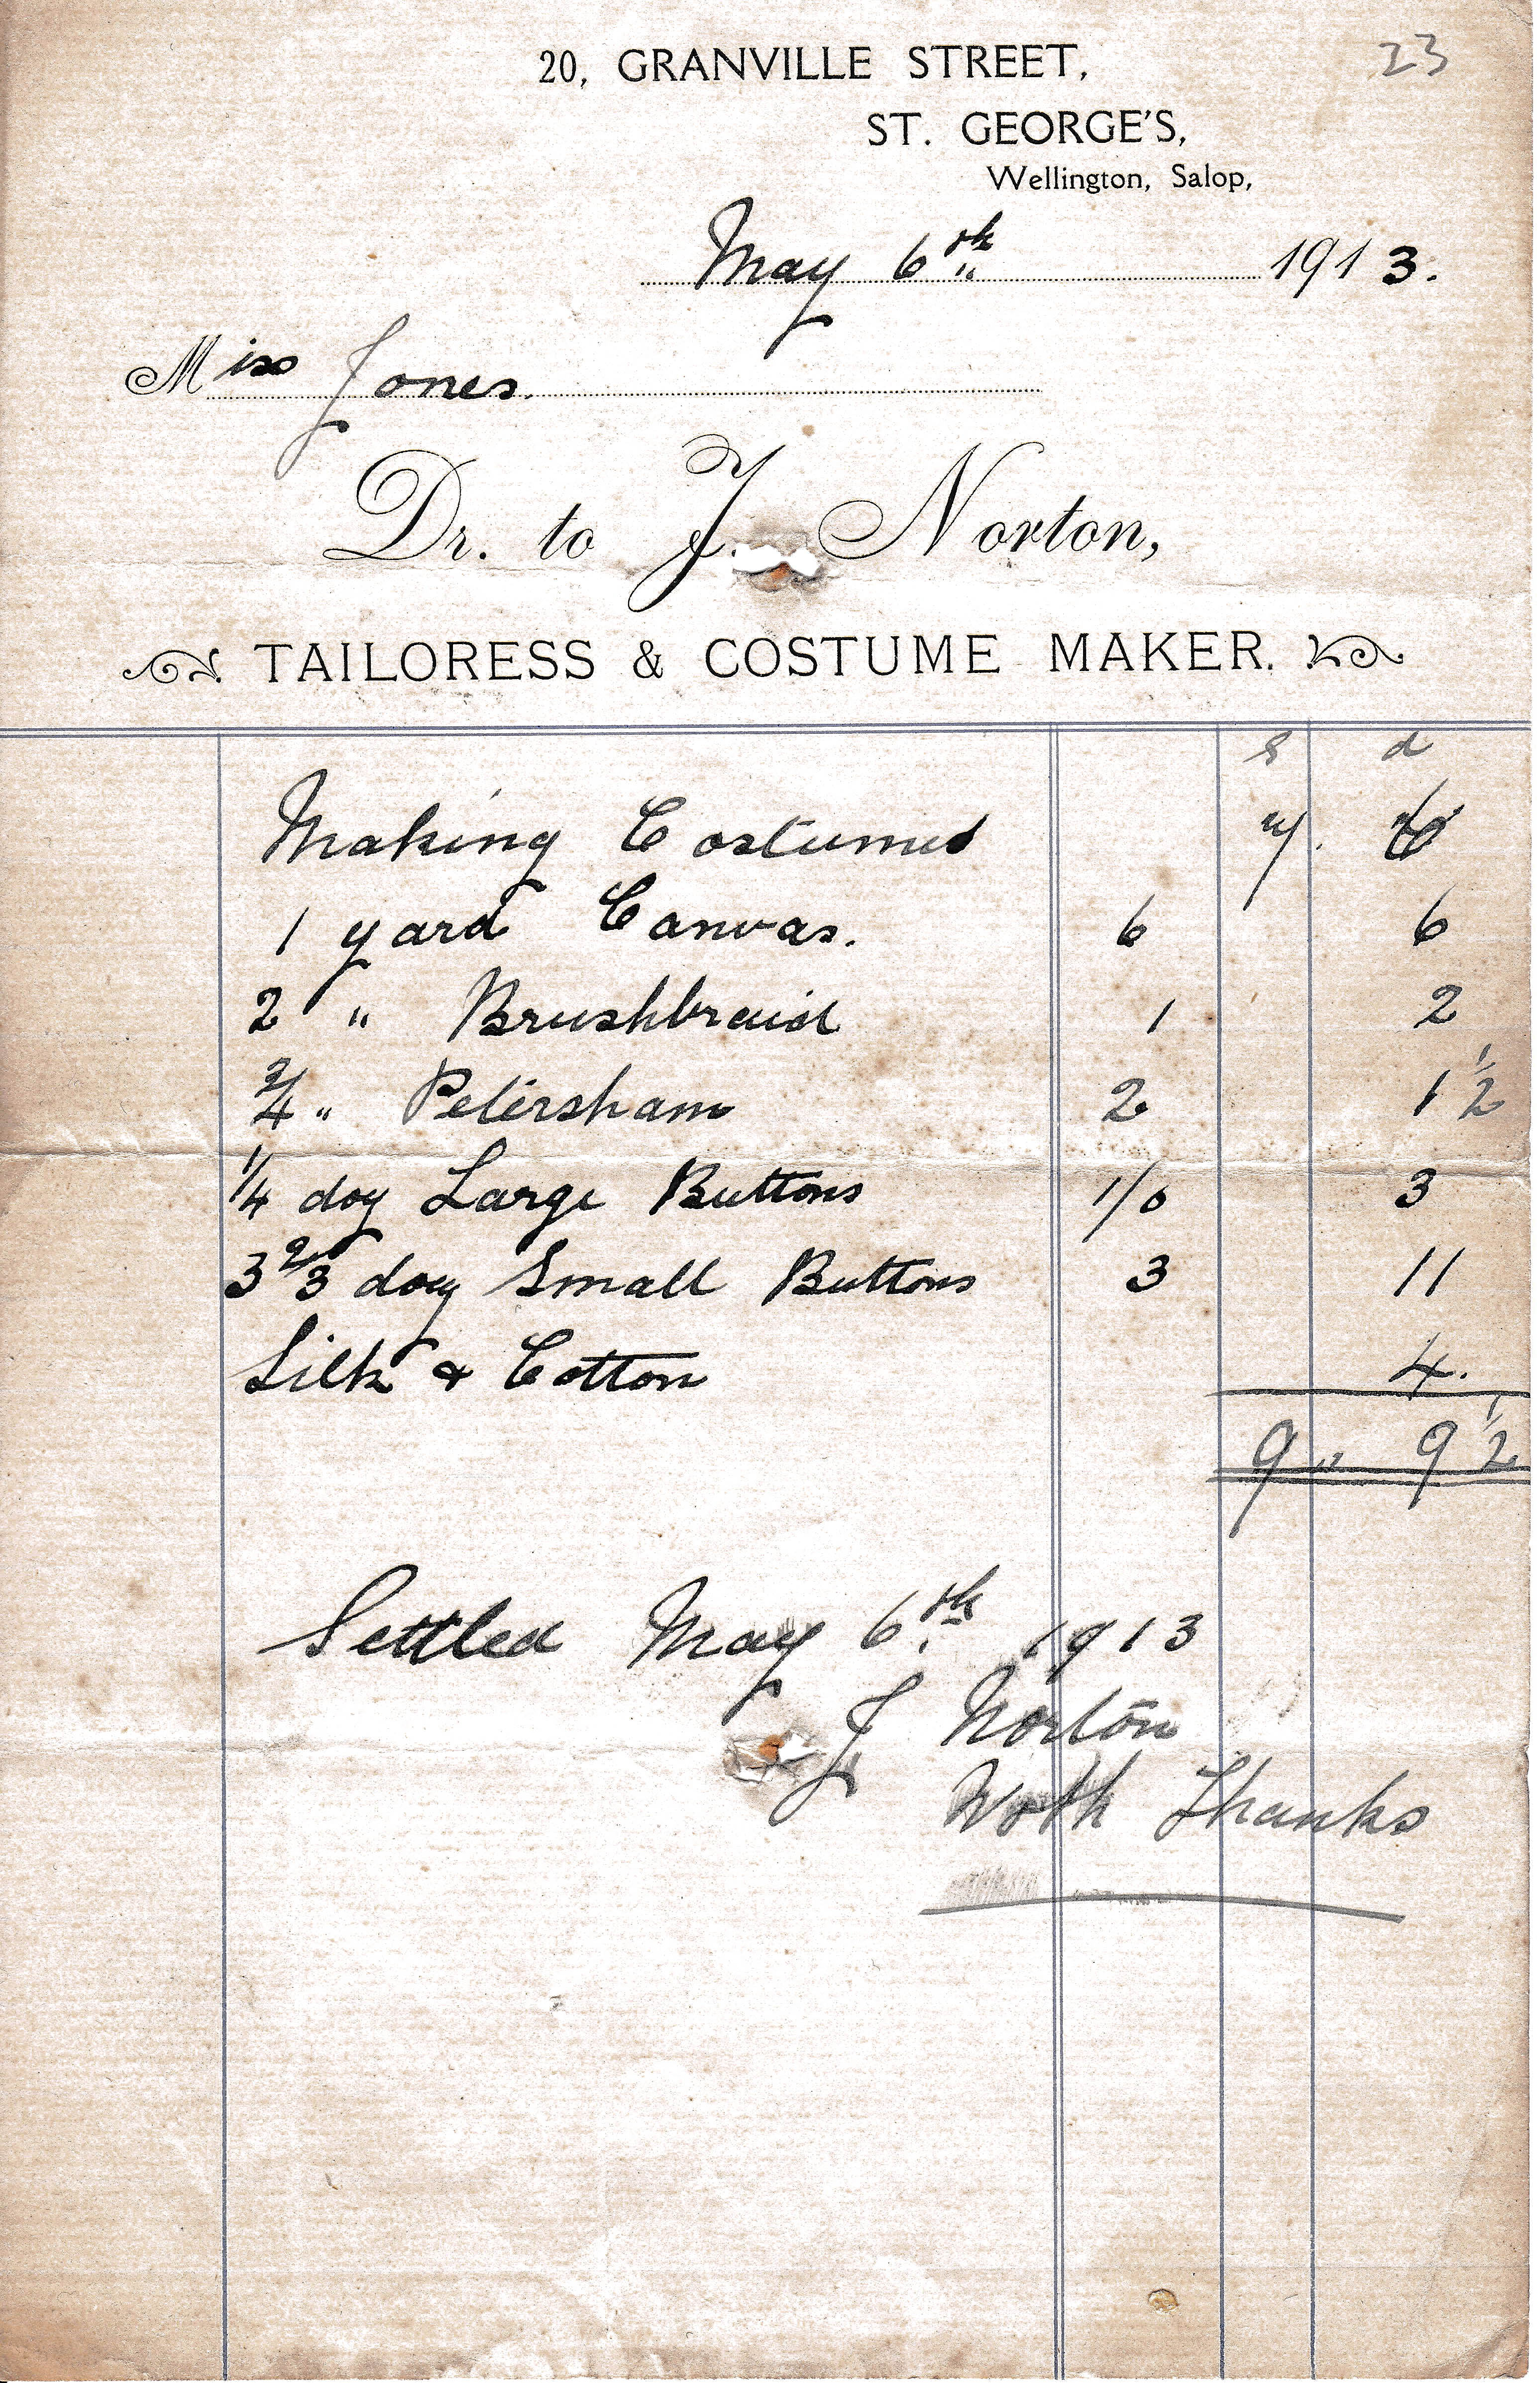 23
20, GRANVILLE STREET,
ST. GEORGE'S,
Wellington, Salop,
May 6th 1913.
Miss Jones.
Dr. to J. Norton,
TAILORESS & COSTUME MAKER.
s d
Making Costume 7. 6
1 yard Canvas. 6 6
2 " Brushbraid 1 2
3/4 " Petersham 2 1 1/2
1/4 doz Large Buttons 1/0 3
3 2/3 doz Small Buttons 3 11
Silk & Cotton 4.
9 " 9 1/2
Settled May 6th 1913
J Norton
With Thanks